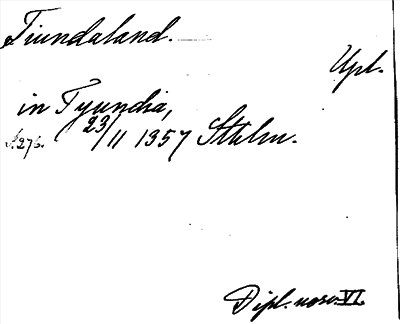 Tiundaland.
Upl.
in Tyundia,
s. 276. 23/11 1357 Sthlm.
Dipl. norv. VI.